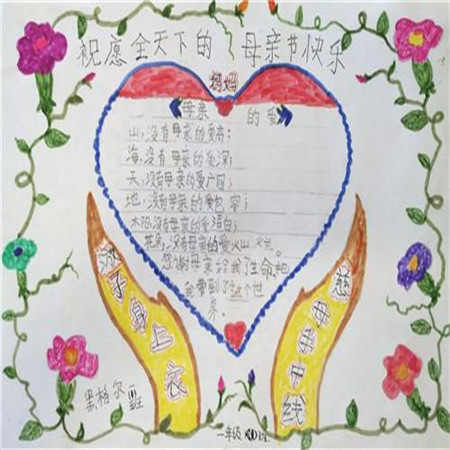 祝愿全天下的 母亲节快乐
妈妈
《母亲的爱》
山,没有母亲的爱高;
海,没有母亲的爱深;
天,没有母亲的爱广阔;
地,没有母亲的爱包容;
太阳,没有母亲的爱
花朵,没有母亲的爱灿烂。
感谢母亲给我了生命,把
我带到了这个世
界。
慈母手中线
游子身上衣
黑格尔 班
一年级